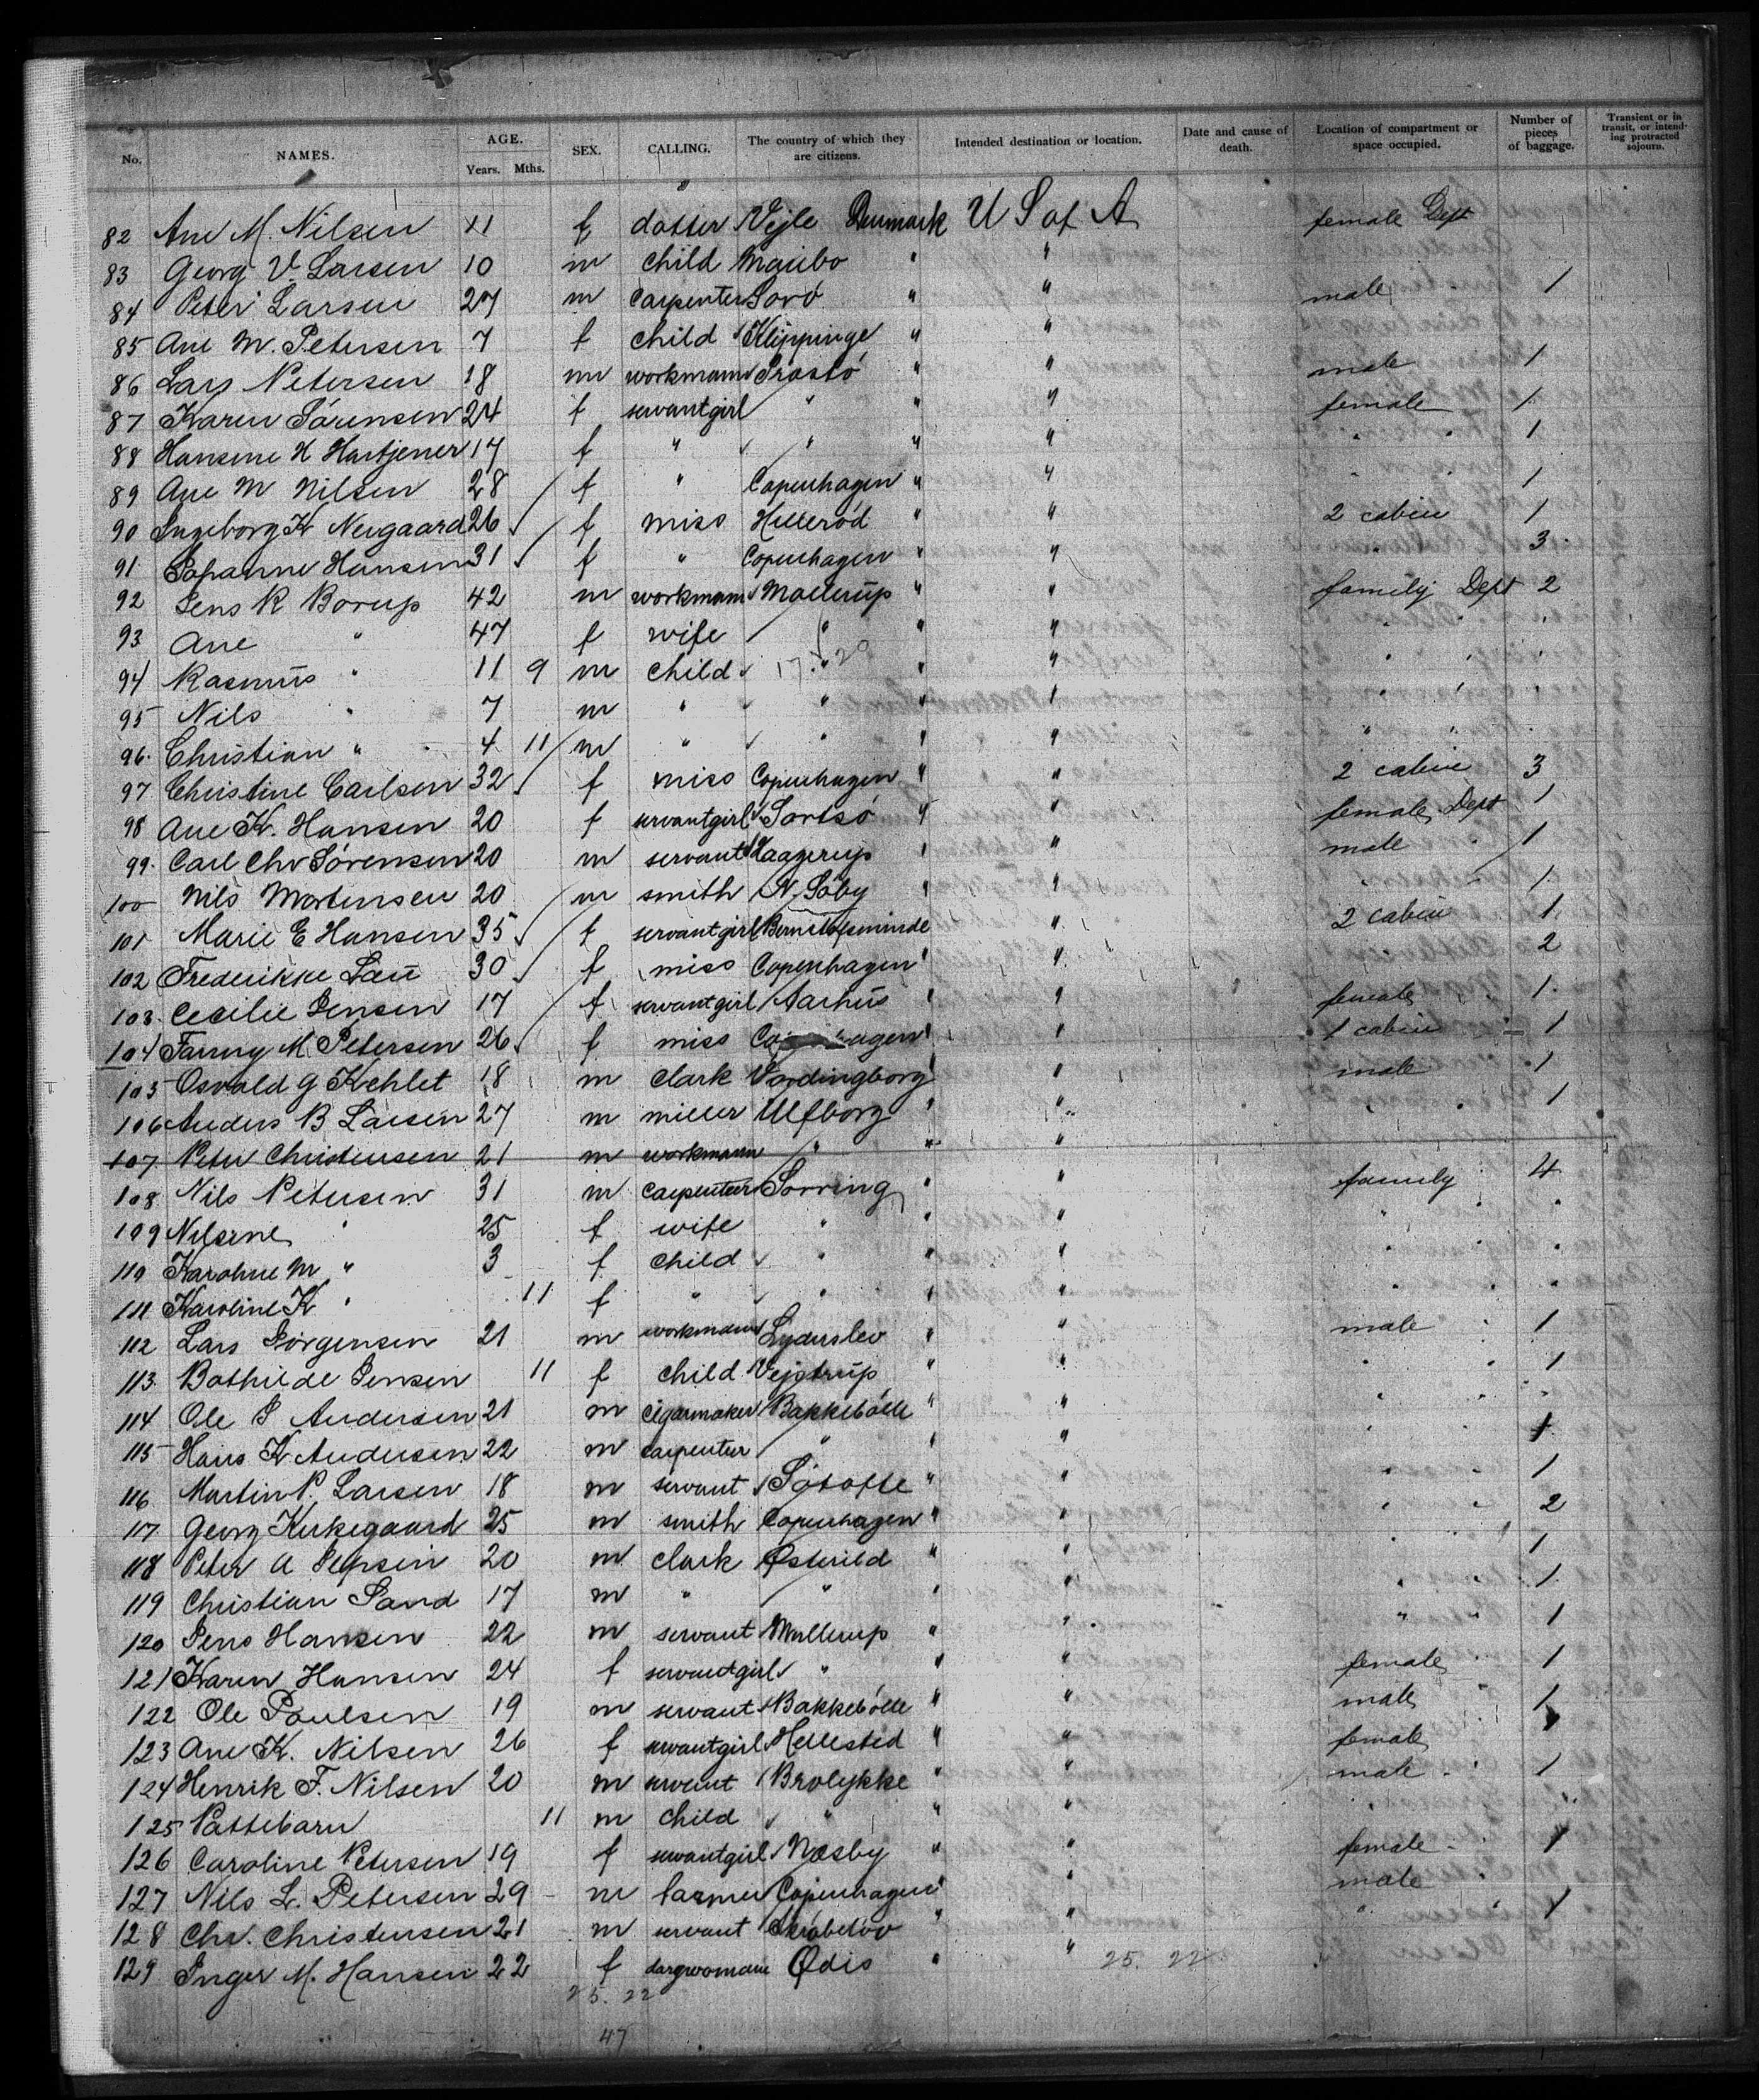 No. NAMES. AGE. Years. Mths. SEX. CALLING. The country of which they are citizens. Intended destination or location. Date and cause of death. Location of compartment or space occupied. Number of pieces of baggage. Transient or in transit, or intending protracted sojourn.
82 Ane M. Nilsen 11 f datter Vejle Denmark U S of A female Dept
83 Georg V Larsen 10 m child Maribo " "
84 Peter Larsen 27 m carpenter Sorö " " male 1
85 Ane M. Petersen 7 f child Klippinge " "
86 Lars Petersen 18 m workmann Prästö " " male 1
87 Karen Sörensen 24 f servantgirl " " " female 1
88 Hansine H Hartjener 17 f " " " " " " 1
89 Ane M Nilsen 28 f " Copenhagen " " " " 1
90 Ingeborg K Neugaard 26 f miss Hilleröd " " 2 cabin 1
91 Johanne Hansen 31 f " Copenhagen " " " 3
92 Jens R Borup 42 m workmann Mollerup " " family Dept 2
93 Ane " 47 f wife " " " " " "
94 Rasmus " 11 9 m child " " " " " "
95 Nils " 7 m " " " " " " "
96 Christian " 4 11 m " " " " " " "
97 Christine Carlsen 32 f miss Copenhagen " " 2 cabin 3
98 Ane K. Hansen 20 f servantgirl Sortsö " " female Dept 1
99 Carl Chr Sörensen 20 m servant Kaagerup " " male " 1
100 Nils Mortensen 20 m smith N. Söby " " " " 1
101 Marie E Hansen 35 f servantgirl Bernstofsminde " 2 cabin 1
102 Frederikke Lau 30 f miss Copenhagen " " " 2
103 Cecilie Jensen 17 f servantgirl Aarhus " " female " 1
104 Fanny M. Petersen 26 f miss Copenhagen " " 1 cabin 1
105 Osvald G Kehlet 18 m clark Vordingborg " " male 1
106 Anders B Larsen 27 m miller Ulfborg " " " " 1
107 Peter Christensen 21 m workmann " " "
108 Nils Petersen 31 m carpenter Sorring " " family 4
109 Nilsine " 25 f wife " " " " "
110 Karoline M " 3 f child " " " " "
111 Karoline K " 11 f " " " " " " "
112 Lars Jörgensen 21 m workmann Lyderslev " " male " 1
113 Bothilde Jensen 11 f child Vejstrup " " " " 1
114 Ole J Andersen 21 m cigarmaker Bakkebölle " " " "
115 Hans K Andersen 22 m carpenter " " " " 1
116 Martin P. Larsen 18 m servant Götofte " " " " 1
117 Georg Kirkegaard 25 m smith Copenhagen " " " " 2
118 Peter A Jepsen 20 m clark Østerild " " " " 1
119 Christian Sand 17 m " " " " " " 1
120 Jens Hansen 22 m servant Mullerup " " " " 1
121 Karen Hansen 24 f servantgirl " " " female " 1
122 Ole Poulsen 19 m servant Bakkebölle " " male " 1
123 Ane K. Nilsen 26 f servantgirl Hellested " " female 1
124 Henrik F. Nilsen 20 m servant Brolykke " " male " 1
125 Pattebarn 11 m child " " " " "
126 Caroline Petersen 19 f servantgirl Næsby " " female " 1
127 Nils L. Petersen 29 m farmer Copenhagen " " male "
128 Chr. Christensen 21 m servant " " " " 1
129 Inger M. Hansen 22 f Ødis " " 25. 22
25. 22
47